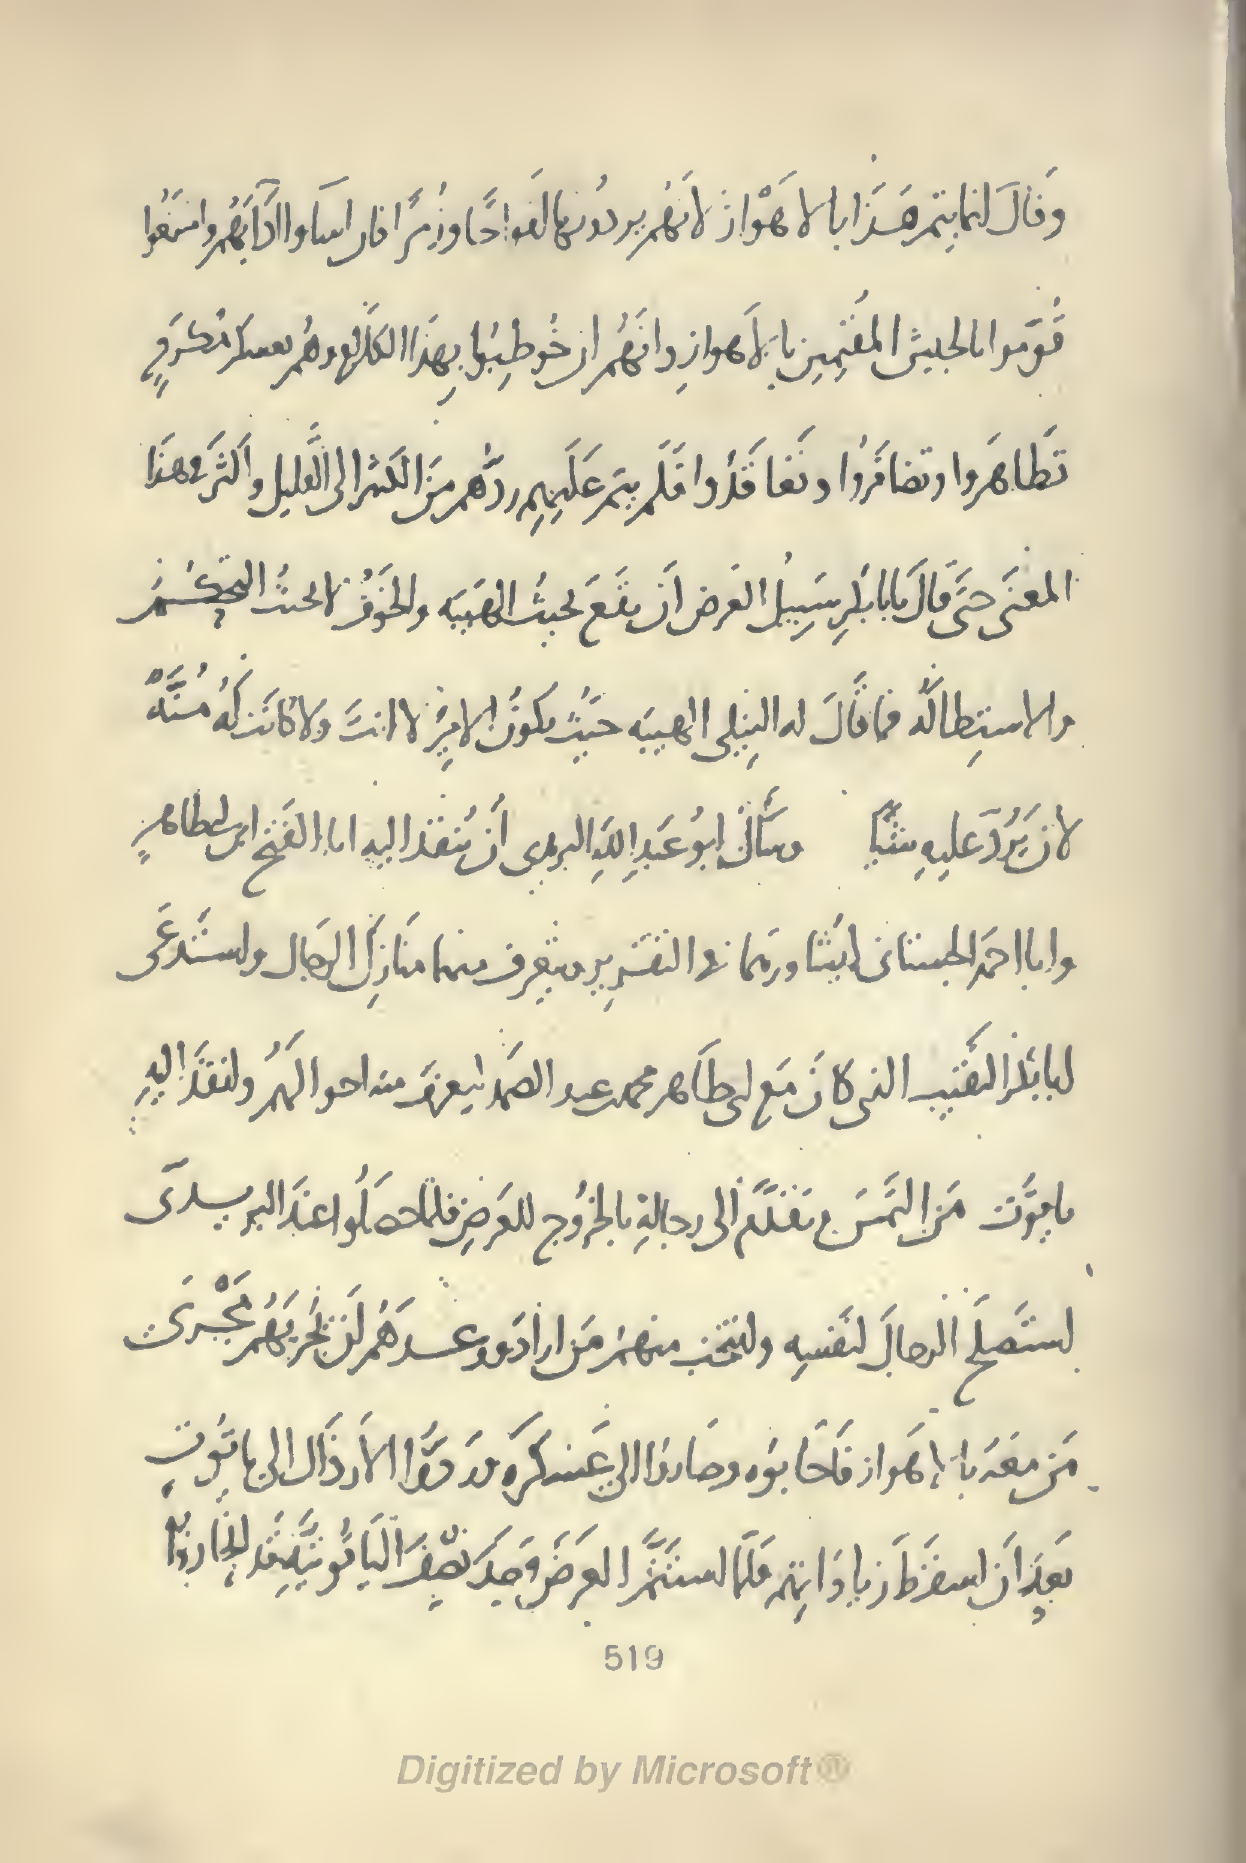 وقَالَ انما يتم هَذا بالاهْواز لانهُم يردُونها افواجًا وزُمرًا فان اساوا ادَابَهُم وامتنَعُوا
قُوِّموا بالجيش المُقيمين بالاهوازِ وانهُم ان خُوطِبُوا بهَذا الكلام وهُم بعسكر مُكرَمٍ
تَظاهَروا وتضافَرُوا وتعاقَدُوا فَلَم يتم عَلَيهِم ردُّهم مِنَ الكثير الى القليل واكثَر في هذا
المعنَى حتَّى قالَ يابا بَكرٍ سَبِيلُ العَرض اَن يقَعَ بحيثُ الهَيبَه والخَوْفُ لا بحيثُ التحكُّمُ
والاستِطالَه فما قَالَ له النيلي الهيبَه حيَثُ يكونُ الامِيرُ لا انتَ وَلا كانَت لهُ مُنَّةٌ
لان يَرُدَّ عليهِ شيًا وسَأَلَ ابُو عَبدِ اللهِ البريدى أَن يُنفذ اليه ابا الفَتح ابن ابى طاهِرٍ
وابا احمَد الجستانى ليشاورهما فى التَقدِير ويعرف منهما منَازِلَ الرجال واستَدعَى
ابا بكر النقيب الذى كانَ مَع ابى طَاهر محمد بن عبد الصمد ليعرف منه احوالهُم وانفَذَ اليهِ
ياقوت مَن التمَسَ وتقدَّم الى رجالهِ بالخرُوج للعَرضِ فلما حصَلُوا عندَ البريدىِّ
استَصلَح الرجالَ لنَفسِه وانتخَب منهُم مَن ارادَ ووعدَهُم اَن يُجريَهُم مَجْرى
مَن معَهُ بالاهَواز فَاجَابوُه وصَارُوا الى عَسكَرَه وردَّ الارذَال الى ياقُوتٍ
بَعدَ اَن اسقَطَ زيادَاتِهم فَلَمّا استَتمَّ العرضَ وَجدَ نصفَ اليَاقُوتيَّه قَد انحازُوا
519
Digitized by Microsoft®